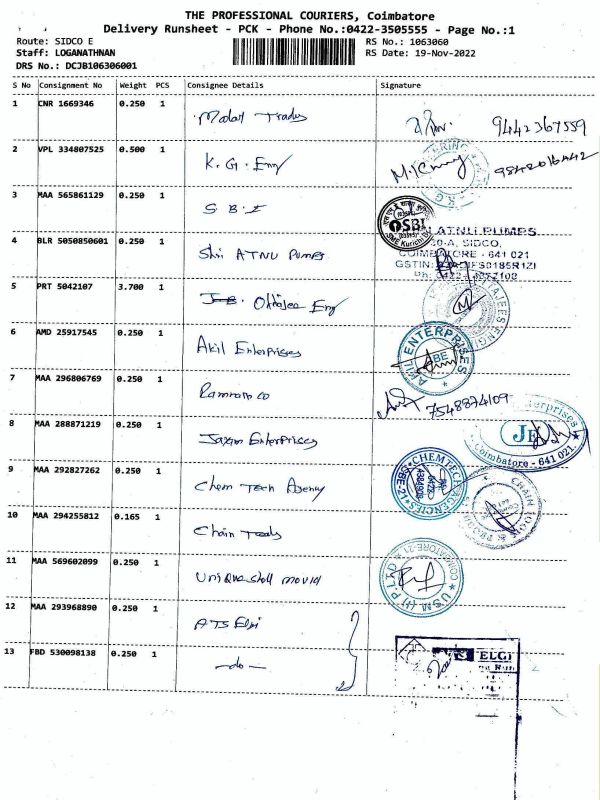 THE PROFESSIONAL COURIERS, Coimbatore
Delivery Runsheet - PCK - Phone No.:0422-3505555 - Page No.:1
Route: SIDCO E RS No.: 1063060
Staff: LOGANATHNAN RS Date: 19-Nov-2022
DRS No.: DCJB106306001
S No Consignment No Weight PCS Consignee Details Signature
1 CNR 1669346 0.250 1 9442367559
2 VPL 334807525 0.500 1 K. G. Eng 9842016442
3 MAA 565861129 0.250 1 S B I SBI
4 BLR 5050850601 0.250 1 Shri ATNU Pumps ATNU PUMPS
SIDCO,
COIMBATORE - 641 021
5 PRT 5042107 3.700 1 Eng
6 AMD 25917545 0.250 1 Akil Enterprises AKIL ENTERPRISES CBE
7 MAA 296806769 0.250 1 7548874109
8 MAA 288871219 0.250 1 Enterprises Enterprises JE Coimbatore - 641 021
9 MAA 292827262 0.250 1 Chem Tech Agency CHEMTECH AGENCIES CBE-21
10 MAA 294255812 0.165 1 Chain Tools CHAIN TOOLS &
11 MAA 569602099 0.250 1 U S M (I) P LTD COIMBATORE-21
12 MAA 293968890 0.250 1 ATS Elgi
13 FBD 530098138 0.250 1 -do- ELGI